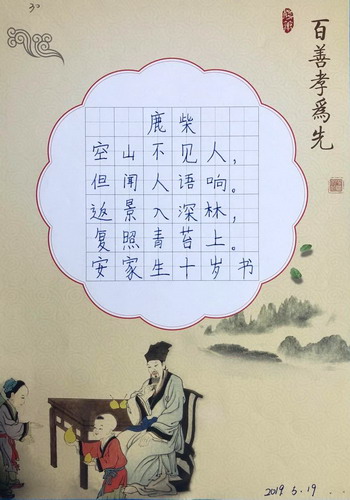 30
百善孝爲先
鹿柴
空山不见人，
但闻人语响。
返景入深林，
复照青苔上。
安家生十岁书
2019 5.19